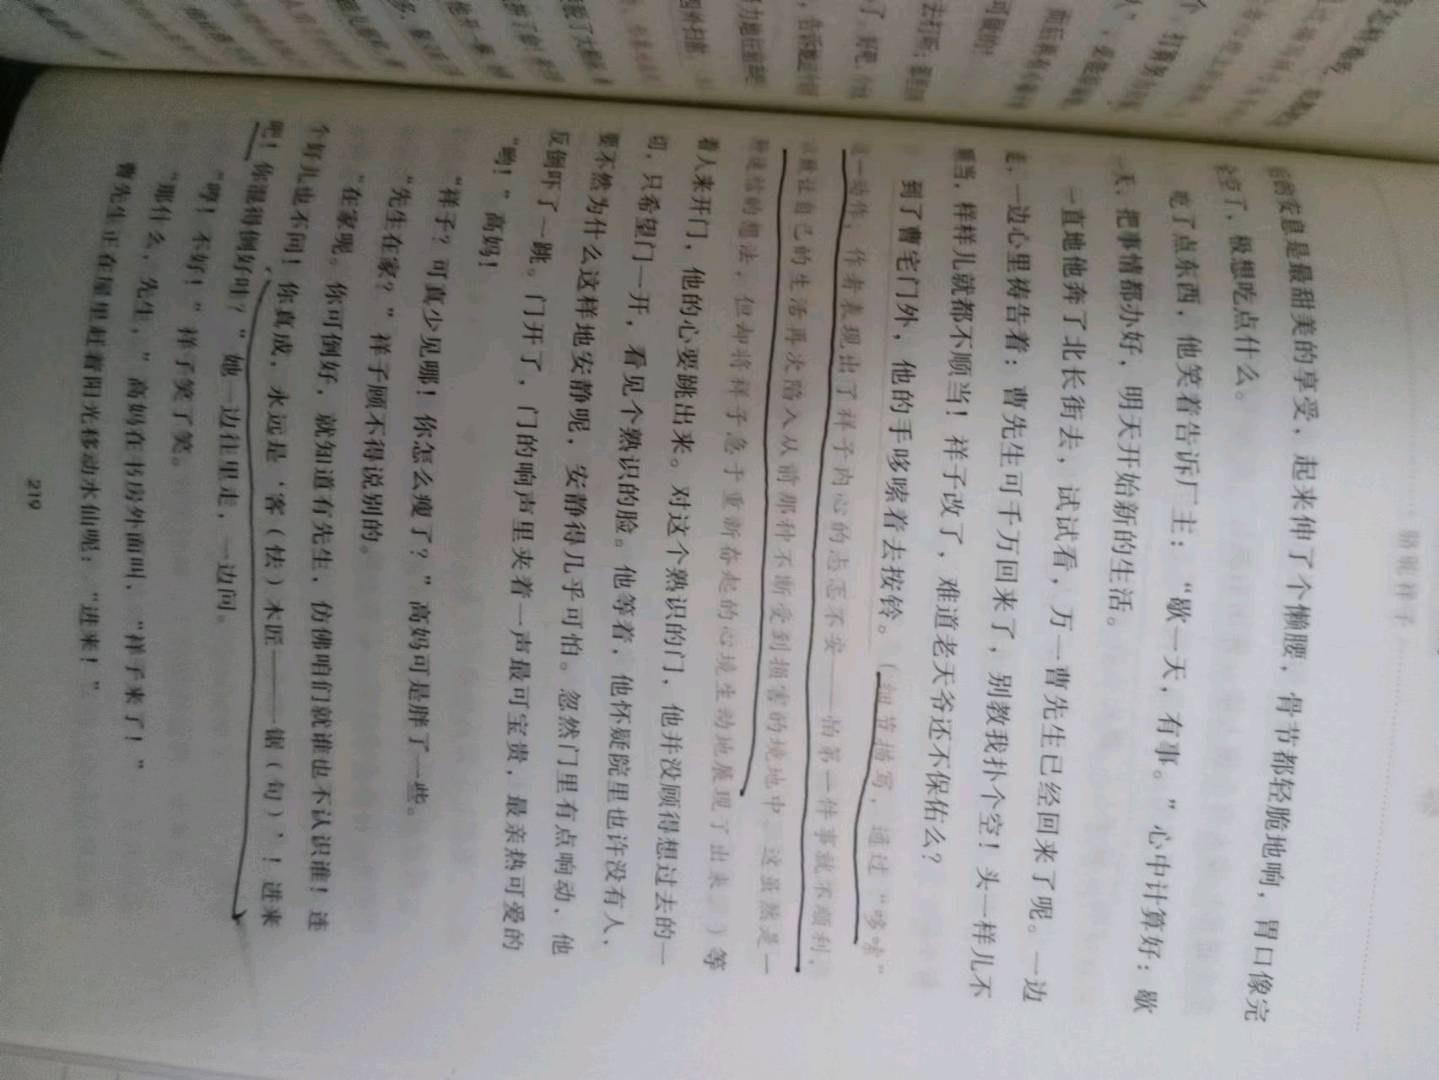 骆驼祥子
的安息是最甜美的享受，起来伸了个懒腰，骨节都轻脆地响，胃口像完
全空了，极想吃点什么。
吃了点东西，他笑着告诉厂主：“歇一天，有事。”心中计算好：歇
一天，把事情都办好，明天开始新的生活。
一直地他奔了北长街去，试试看，万一曹先生已经回来了呢。一边
走，一边心里祷告着：曹先生可千万回来了，别教我扑个空！头一样儿不
顺当，样样儿就都不顺当！祥子改了，难道老天爷还不保佑么？
到了曹宅门外，他的手哆嗦着去按铃。（细节描写，通过“哆嗦”
这一动作，作者表现出了祥子内心的忐忑不安——怕第一件事就不顺利，
就让自己的生活再次陷入从前那种不断受到损害的境地中。这虽然是一
种迷信的想法，但却将祥子急于重新奋起的心境生动地展现了出来。）等
着人来开门，他的心要跳出来。对这个熟识的门，他并没顾得想过去的一
切，只希望门一开，看见个熟识的脸。他等着，他怀疑院里也许没有人，
要不然为什么这样地安静呢，安静得几乎可怕。忽然门里有点响动，他
反倒吓了一跳。门开了，门的响声里夹着一声最可宝贵，最亲热可爱的
“哟！”高妈！
“祥子？可真少见哪！你怎么瘦了？”高妈可是胖了一些。
“先生在家？”祥子顾不得说别的。
“在家呢。你可倒好，就知道有先生，仿佛咱们就谁也不认识谁！连
个好儿也不问！你真成，永远是‘客（怯）木匠——锯（句）’！进来
吧！你混得倒好哇？”她一边往里走，一边问。
“哼！不好！”祥子笑了笑。
“那什么，先生，”高妈在书房外面叫，“祥子来了！”
曹先生正在屋里赶着阳光移动水仙呢：“进来！”
219